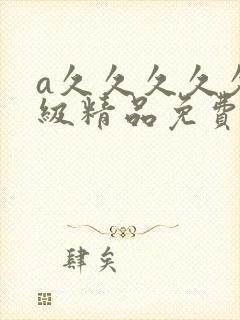 a久久久久久
級精品免費
肆矣